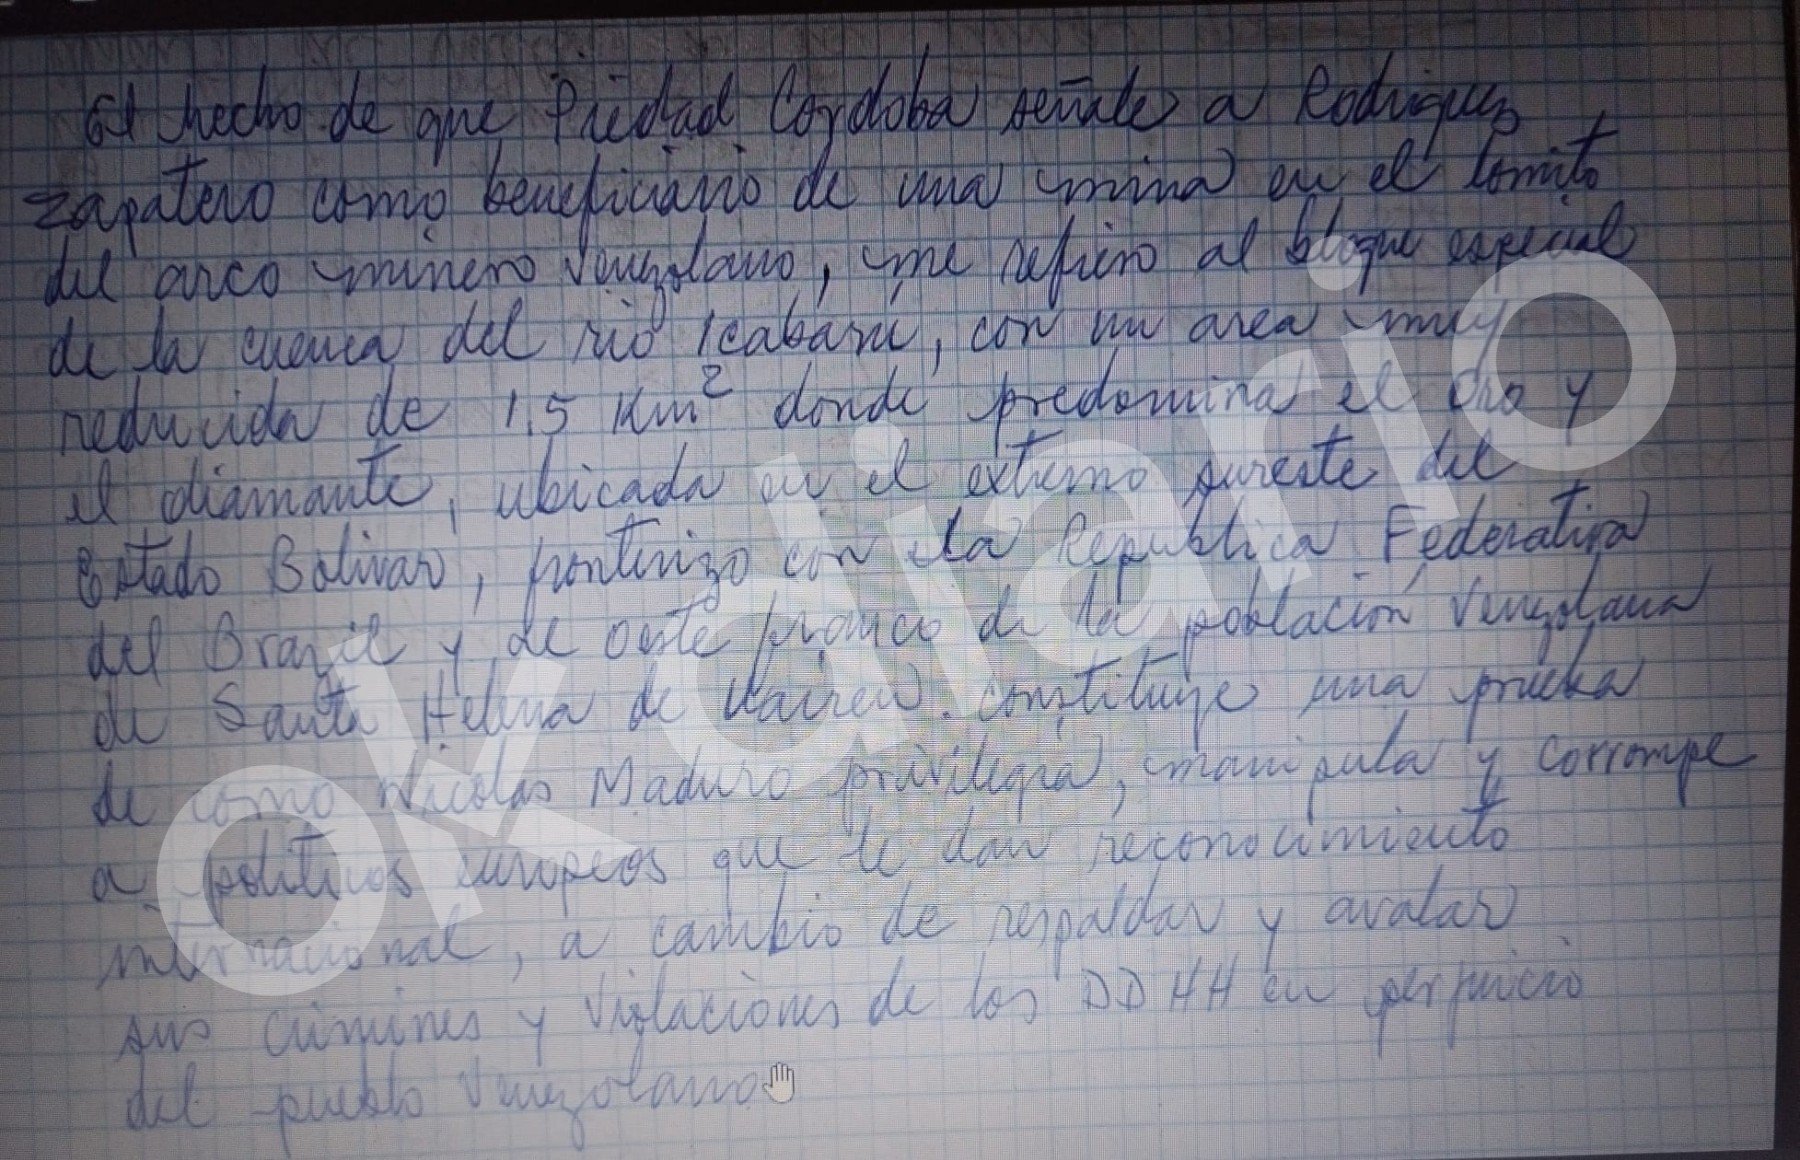 El hecho de que Piedad Cordoba señale a Rodriguez
Zapatero como beneficiario de una mina en el
del arco minero Venezolano, me refiero al bloque especial
de la cuenca del rio Icabarú, con un area muy
reducida de 1,5 Km² donde predomina el Oro y
el diamante, ubicada en el extremo sureste del
Estado Bolivar, fronterizo con la Republica Federativa
del Brazil y al Oeste franco de la población Venezolana
de Santa Helena de Uairen. constituye una prueba
de como Nicolas Maduro privilegia, manipula y corrompe
a politicos europeos que le dan reconocimiento
internacional, a cambio de respaldar y avalar
sus crimines y Violaciones de los DDHH en perjuicio
del pueblo Venezolano
okdiario